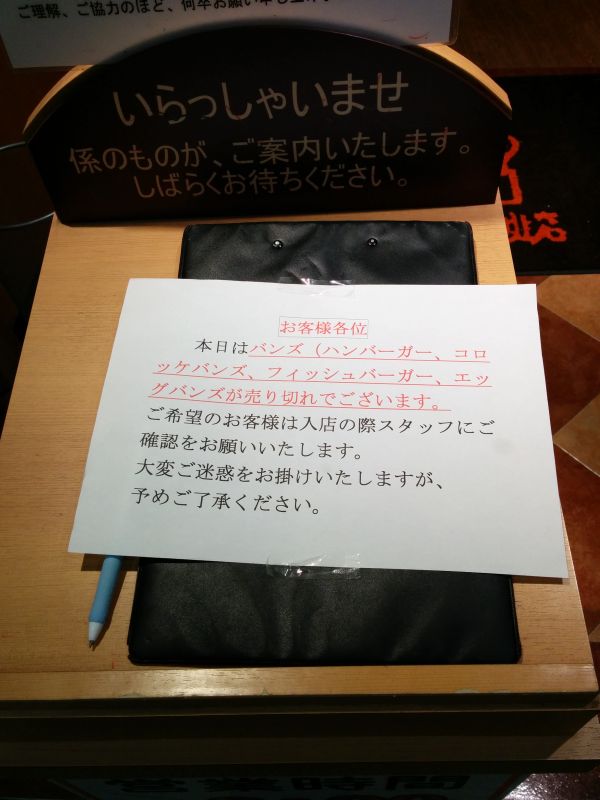 ご理解、ご協力のほど、何卒お願い申し上げ
いらっしゃいませ
係のものが、ご案内いたします。
しばらくお待ちください。
お客様各位
本日はバンズ（ハンバーガー、コロ
ッケバンズ、フィッシュバーガー、エッ
グバンズが売り切れでございます。
ご希望のお客様は入店の際スタッフにご
確認をお願いいたします。
大変ご迷惑をお掛けいたしますが、
予めご了承ください。
営業時間